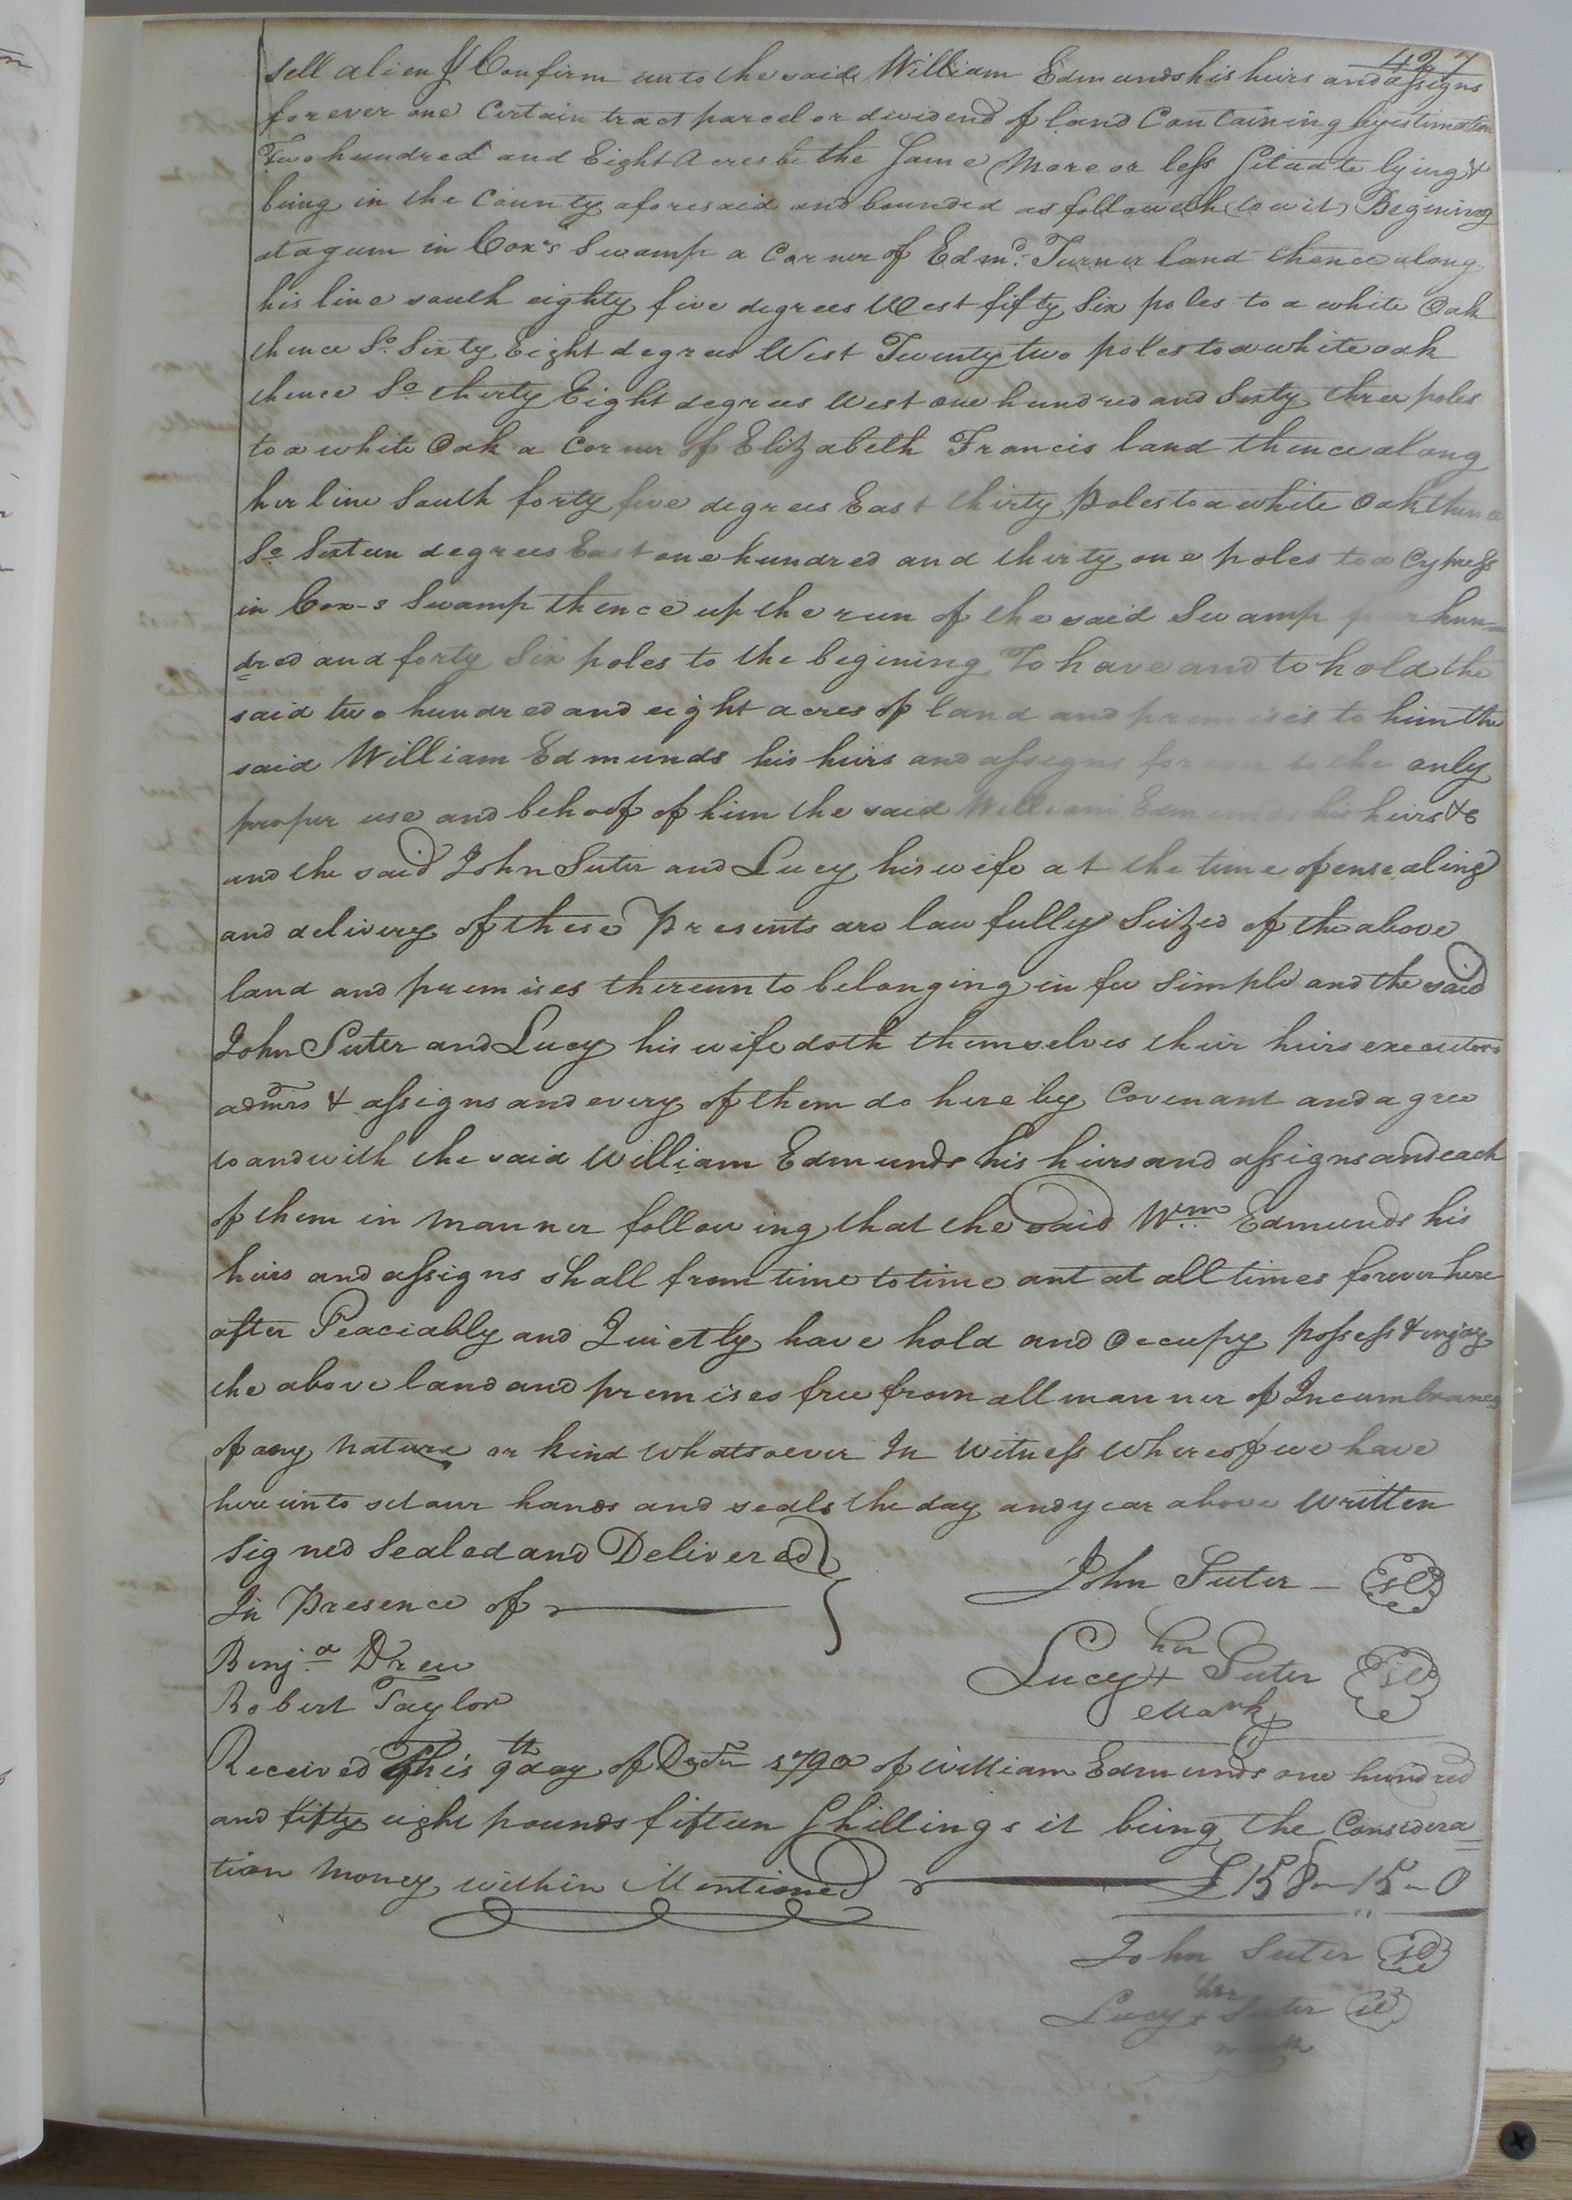 427
sell alien & Confirm unto the said William Edmunds his heirs and assigns
forever one Certain tract parcel or dividend of land Containing by estimation
Two hundred and Eight Acres be the Same More or less Situate lying &
being in the County aforesaid and bounded as followeth (to wit) Begining
at a gum in Cox's Swamp a Corner of Edmd. Turner land thence along
his line south eighty five degrees West fifty Six poles to a white Oak
thence So. Sixty Eight degrees West Twenty two poles to a white oak
thence So. thirty Eight degrees West one hundred and Sixty three poles
to a white Oak a Corner of Elizabeth Francis land thence along
her line South forty five degrees East thirty poles to a white Oak thence
So. Sixteen degrees East one hundred and thirty one poles to a Cypress
in Cox-s Swamp thence up the run of the said Swamp four hun-
dred and forty Six poles to the begining To have and to hold the
said two hundred and eight acres of land and premises to him the
said William Edmunds his heirs and assigns forever to the only
proper use and behoof of him the said William Edmunds his heirs &c
and the said John Suter and Lucy his wife at the time of ensealing
and delivery of these Presents are lawfully Seized of the above
land and premises thereunto belonging in fee Simple and the said
John Suter and Lucy his wife doth themselves their heirs executors
admrs & assigns and every of them do hereby Covenant and agree
to and with the said William Edmunds his heirs and assigns and each
of them in manner following that the said Wm Edmunds his
heirs and assigns shall from time to time ant at all times forever here
after Peaciably and Quietly have hold and Occupy possess & enjoy
the above land and premises free from all manner of Incumbrances
of any Nature or kind Whatsoever In Witness Whereof we have
hereunto set our hands and seals the day and year above Written
Signed Sealed and Delivered
In Presence of
John Suter - Se
Benja. Drew
her
Lucy + Suter Se
Mark
Robert Taylor
Received This 9th day of 1790 of William Edmunds one hundred
and fifty eight pounds fifteen Shillings it being the Considera
tion Money within Mentioned £158-15-0
John Suter Se
her
Lucy + Suter Se
mark